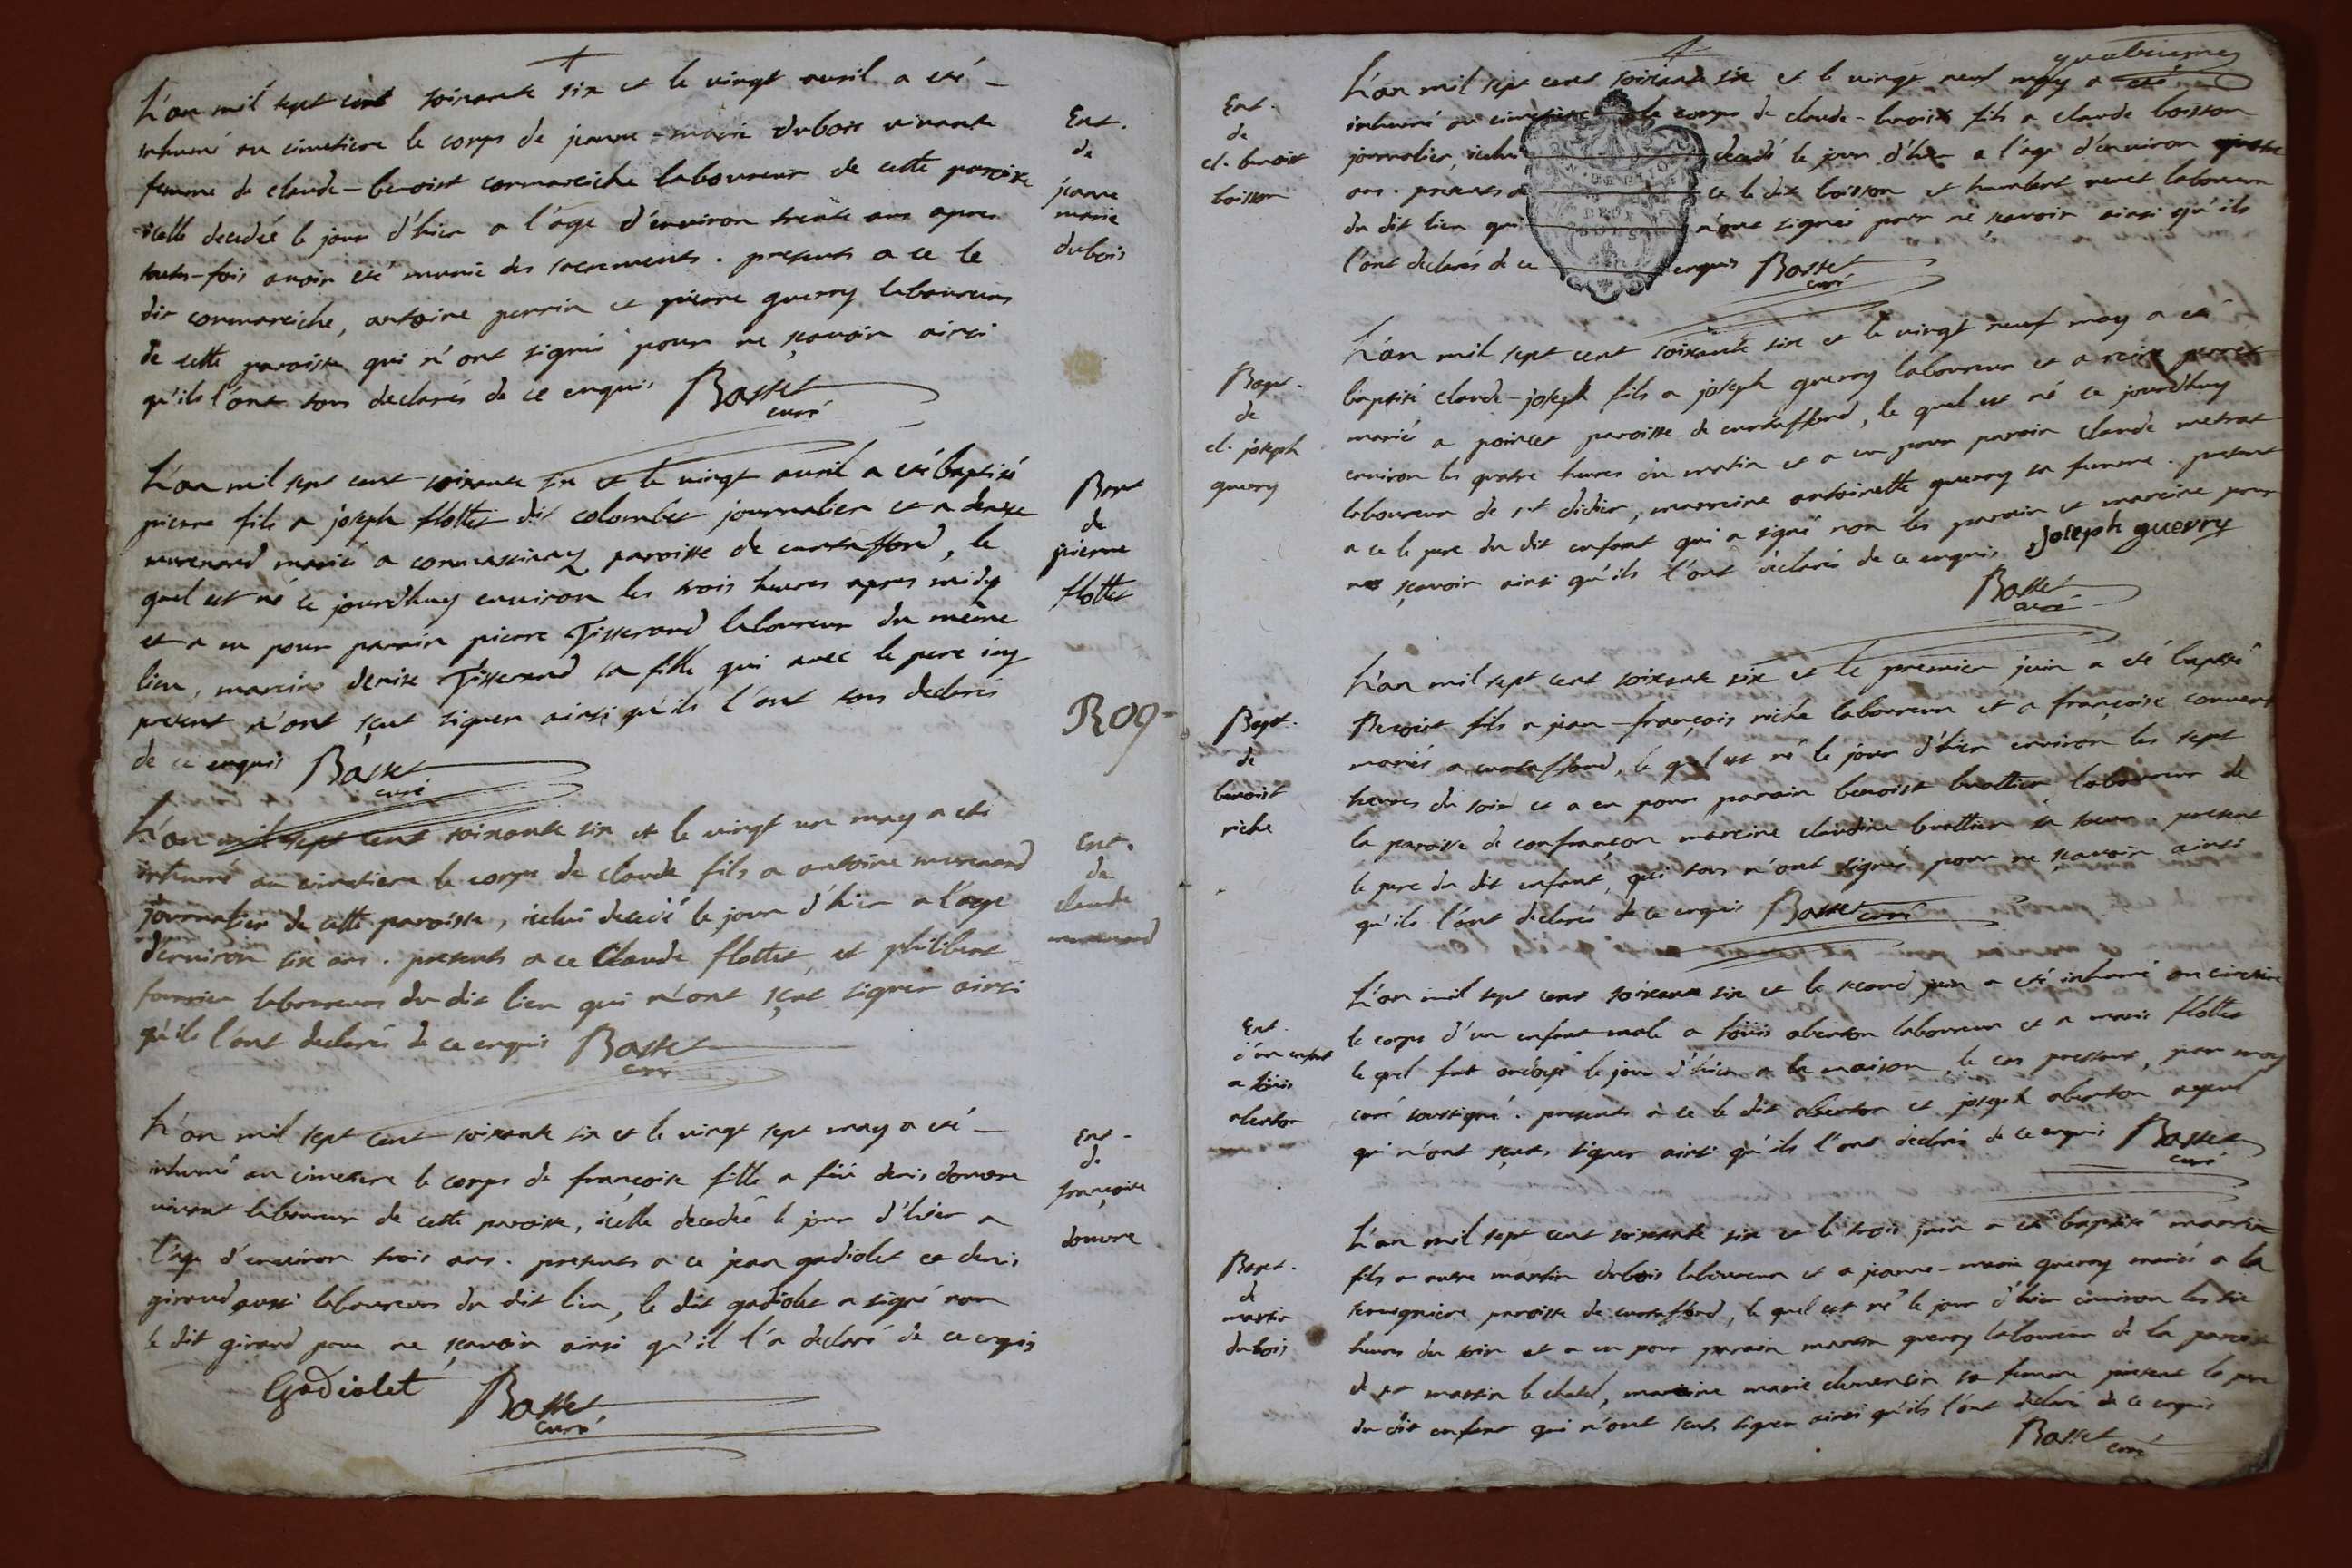 L'an mil sept cent soixante six et le vingt avril a eté
inhumé au cimetiere le corps de jeanne-marie dubois vivante
femme de claude-benoist cormareiche laboureur de cette paroisse
icelle decedée le jour d'hier a l'âge d'environ trente ans apres
toutes-fois avoir eté munie des sacrements. presents a ce le
dit cormareiche, antoine perrin et pierre guerry laboureurs
de cette paroisse qui n'ont signés pour ne sçavoir ainsi
qu'ils l'ont tous declarés de ce enquis Basset
curé
Ent.
de
jeanne
marie
dubois
L'an mil sept cent soixante six et le vingt avril a eté baptisé
pierre fils a joseph flottet dit colombet journalier et a denise
murenard mariés a paroisse de curtaffond, le
quel est né ce jourdhuy environ les trois heures apres midy
et a eu pour parain pierre Tisserand laboureur du même
lieu, mareine denise Tisserand sa fille qui avec le pere icy
present n'ont sçut signer ainsi qu'ils l'ont tous declarés
de ce enquis Basset
curé
Bapt
de
pierre
flottet
R09-
L'an mil sept cent soixante six et le vingt un may a eté
inhumé au cimetiere le corps de claude fils a antoine murenard
journalier de cette paroisse, icelui decedé le jour d'hier a l'age
d'environ six ans. presents a ce Claude flottet, et philibert
laboureurs du dit lieu qui n'ont sçut signer ainsi
qu'ils l'ont declarés de ce enquis Basset
curé
Ent.
de
claude
murenard
L'an mil sept cent soixante six et le vingt sept may a eté
inhumé au cimetiere le corps de françoise fille a feü denis douvre
vivant laboureur de cette paroisse, icelle decedée le jour d'hier a
l'age d'environ trois ans. presents a ce jean gadiolet et denis
giraud aussi laboureurs du dit lieu, le dit gadiolet a signé non
le dit girard pour ne sçavoir ainsi qu'il l'a declaré de ce enquis
Gadiolet Basset
curé
Ent.
de
françoise
douvre
quatrieme
L'an mil sept cent soixante six et le vingt neuf may a eté
inhumé au cimetiere le corps de claude-benoist fils a claude boisson
journalier, icelui decedé le jour d'hier a l'age d'environ quatre
ans. presents a ce le dit boisson et humbert laboureur
du dit lieu qui n'ont signés pour ne sçavoir ainsi qu'ils
l'ont declarés de ce enquis Basset
curé
DEUX
SOLS
Ent.
de
cl. benoist
boisson
L'an mil sept cent soixante six et le vingt neuf may a eté
baptisé claude-joseph fils a joseph guerry laboureur et a perret
mariés a poincet paroisse de curtaffond, le quel est né ce jourdhuy
environ les quatre heures du matin et a eu pour parain Claude metrat
laboureur de st didier, mareine antoinette guerry sa femme. present
a ce le pere du dit enfant qui a signé non les parain et mareine pour
ne sçavoir ainsi qu'ils l'ont declarés de ce enquis Joseph guerry
Basset
curé
Bapt.
de
cl. joseph
guerry
L'an mil sept cent soixante six et le premier juin a eté baptisé
Benoist fils a jean-françois riche laboureur et a françoise convert
mariés a curtaffond, le quel est né le jour d'hier environ les sept
heures du soir et a eu pour parain benoist brottier laboureur de
la paroisse de confrançon mareine claudine brottier sa soeur. present
le pere du dit enfant, qui tous n'ont signés pour ne sçavoir ainsi
qu'ils l'ont declarés de ce enquis Basset curé
Bapt.
de
benoist
riche
L'an mil sept cent soixante six et le second juin a eté inhumé au cimetiere
le corps d'un enfant male a loüis oberton laboureur et a marie flottet
le quel fut ondoyé le jour d'hier a la maison, le cas pressant, par moy
curé soussigné. presents a ce le dit oberton et joseph oberton ayeul
qui n'ont sçuts signer ainsi qu'ils l'ont declarés de ce enquis Basset
curé
Ent.
d'un enfant
a loüis
oberton
L'an mil sept cent soixante six et le trois juin a eté baptisé martin
fils a autre martin dubois laboureur et a jeanne-marie guerry mariés a la
paroisse de curtaffond, le quel est né le jour d'hier environ les six
heures du soir et a eu pour parain martin guerry laboureur de la paroisse
de st martin le chatel, mareine marie sa femme present le pere
du dit enfant qui n'ont sçuts signer ainsi qu'ils l'ont declarés de ce enquis
Basset curé
Bapt.
de
martin
dubois